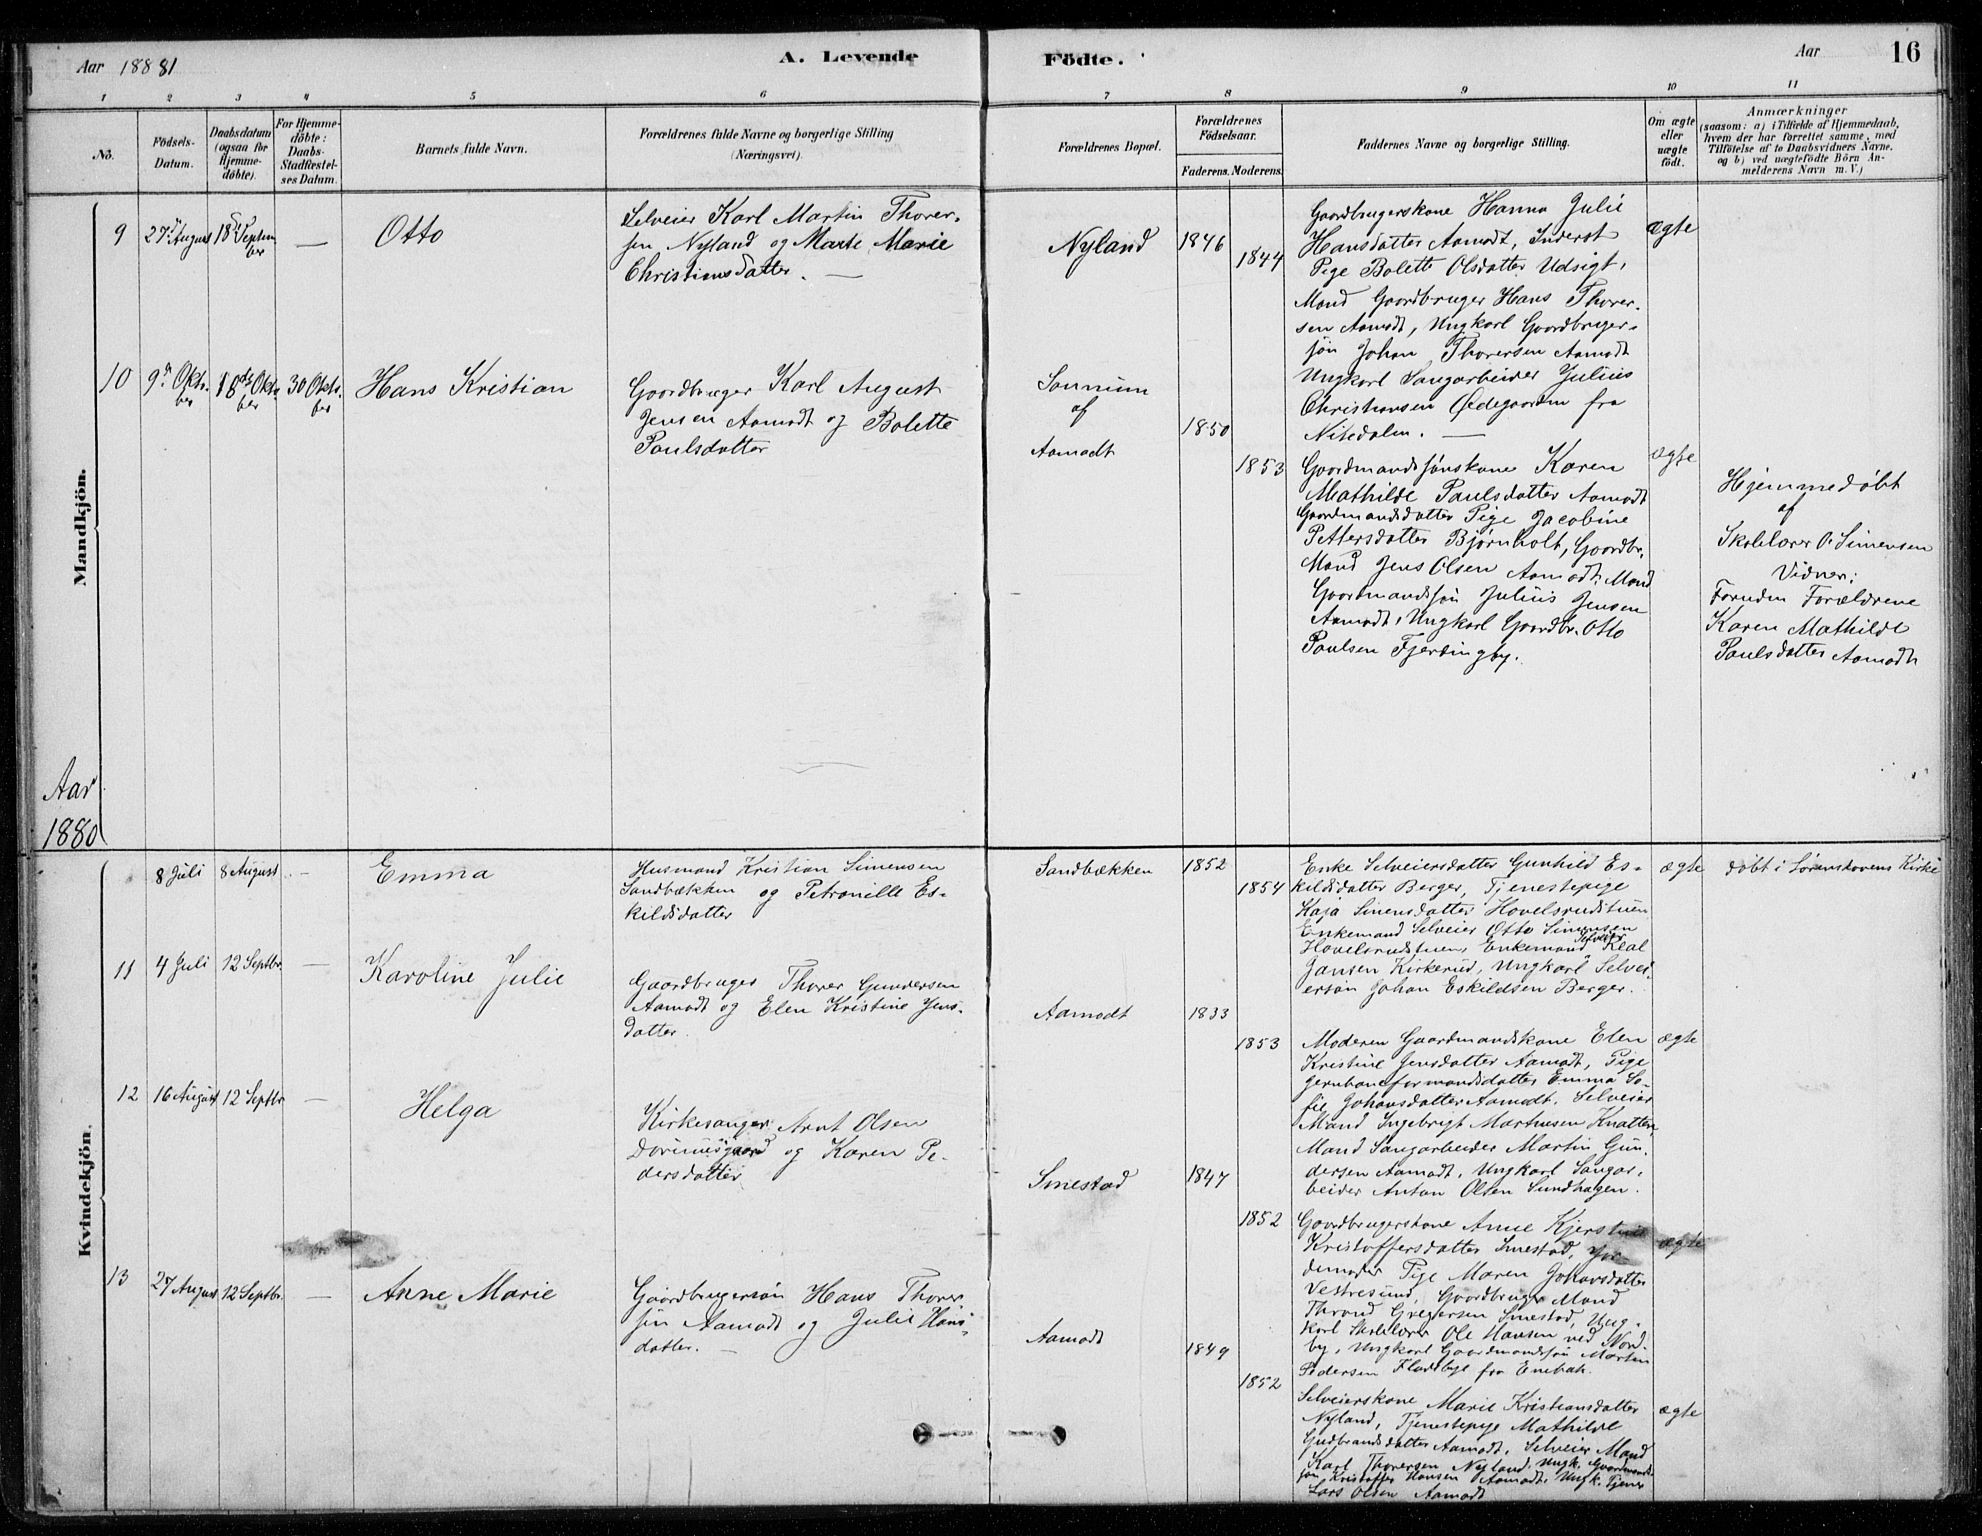 Aar 18881
A. Levende
Födte.
Aar
16
1 2 3 4 5 6 7 8 9 10 11
No.
Födsels-
Datum.
Daabsdatum
(ogsaa for
Hjemme-
döbte).
For Hjemme-
döbte:
Daabs-
Stadfæstel-
ses Datum.
Barnets fulde Navn.
Forældrenes fulde Navne og borgerlige Stilling
(Næringsvei).
Forældrenes Bopæl.
Forældrenes
Födselsaar.
Faderens. Moderens.
Faddernes Navne og borgerlige Stilling.
Om ægte
eller
uægte
födt.
Anmærkninger
(saasom: a) i Tilfælde af Hjemmedaab,
hvem der har forrettet samme, med
Tilföielse af to Daabsvidners Navne.
og b) ved uægtefödte Börn An-
melderens Navn m. V.)
Mandkjön.
9
27 August
18 Septem
ber
—
Otto
Selveier Karl Martin Thorer-
sen Nyland og Marte Marie
Christiansdatter. —
Nyland
1846
1844
Gaardbrugerskone Hanna Julie
Hansdatter Aamodt, Inderst
Pige Bolette Olsdatter Udsigt,
Mand Gaardbruger Hans Thorer-
sen Aamodt, Ungkarl Gaardbruger-
søn Johan Thorersen Aamodt
Ungkarl Saugarbeider Julius
Christiansen Ødegaarden fra
Nitedalen. —
ægte
10
9 Okto-
ber
18de Okto-
ber
30 Okto-
ber
Hans Kristian
Gaardbruger Karl August
Jensen Aamodt og Bolette
Paulsdatter
af
Aamodt
1850
1853
Gaardmandssønskone Karen
Mathilde Paulsdatter Aamodt
Gaardmandsdatter Pige Jacobine
Pettersdatter Bjørnholt, Gaardbr.
Mand Jens Olsen Aamodt, Mand
Gaardmandssøn Julius Jensen
Aamodt, Ungkarl Gaardbr. Otto
Paulsen Fjerdingby.
ægte
Hjemmedøbt
af
Skolelærer O. Simensen
Vidner:
Foruden Forældrene
Karen Mathilde
Paulsdatter Aamodt
Aar
1880
Kvindekjön.
8 Juli
8 August
—
Emma
Husmand Kristian Simensen
Sandbækken og Petronille Es-
kildsdatter
Sandbækken
1852
1854
Enke Selveiersdatter Gunhild Es-
kildsdatter Berger, Tjenestepige
Kaja Simensdatter Hovelsrudstuen
Enkemand Selveier Otto Simensen
Hovelsrudstuen, Enkemand Selveier
Jansen Kirkerud, Ungkarl Selvei-
ersøn Johan Eskildsen Berger.
ægte
døbt i Sørenskovens Kirke
11
4 Juli
12 Septbr.
—
Karoline Julie
Gaardbruger Thorer Gundersen
Aamodt og Elen Kristine Jens-
datter.
Aamodt
1833
1853
Moderen Gaardmandskone Elen
Kristine Jensdatter Aamodt, Pige
Jernbaneformandsdatter Emma So-
fie Johansdatter Aamodt. Selveier
Mand Ingebrigt Martinsen Knatten,
Mand Saugarbeider Martin Gun-
dersen Aamodt, Ungkarl Saugar-
beider Anton Olsen Sundhagen.
ægte
12
16 August
12 Septbr.
—
Helga
Kirkesanger Arnt Olsen
og Karen Pe-
dersdatter
Smestad
1847
1852
Gaardbrugerskone Anne Kjerstine
Kristoffersdatter Smestad, Jor-
demoder Pige Maren Johansdatter
Vestresund, Gaardbruger Mand
Thrond Gregersen Smestad, Ung-
karl Skolelærer Ole Hansen ved Nord-
by, Ungkarl Gaardmandssøn Martin
Pedersen Fladebye fra Enebak.
ægte
13
27 August
12 Septbr.
—
Anne Marie
Gaardbrugersøn Hans Thorer
sen Aamodt og Julie Hans-
datter. —
Aamodt
1849
1852
Selveierskone Marie Kristiansdatter
Nyland, Tjenestepige Mathilde
Gudbrandsdatter Aamodt. Selveier Mand
Karl Thorersen Nyland. Ungk. Gaardmands-
søn Kristoffer Hansen Aamodt. Ungk. Tjener
Lars Olsen Aamodt
ægte